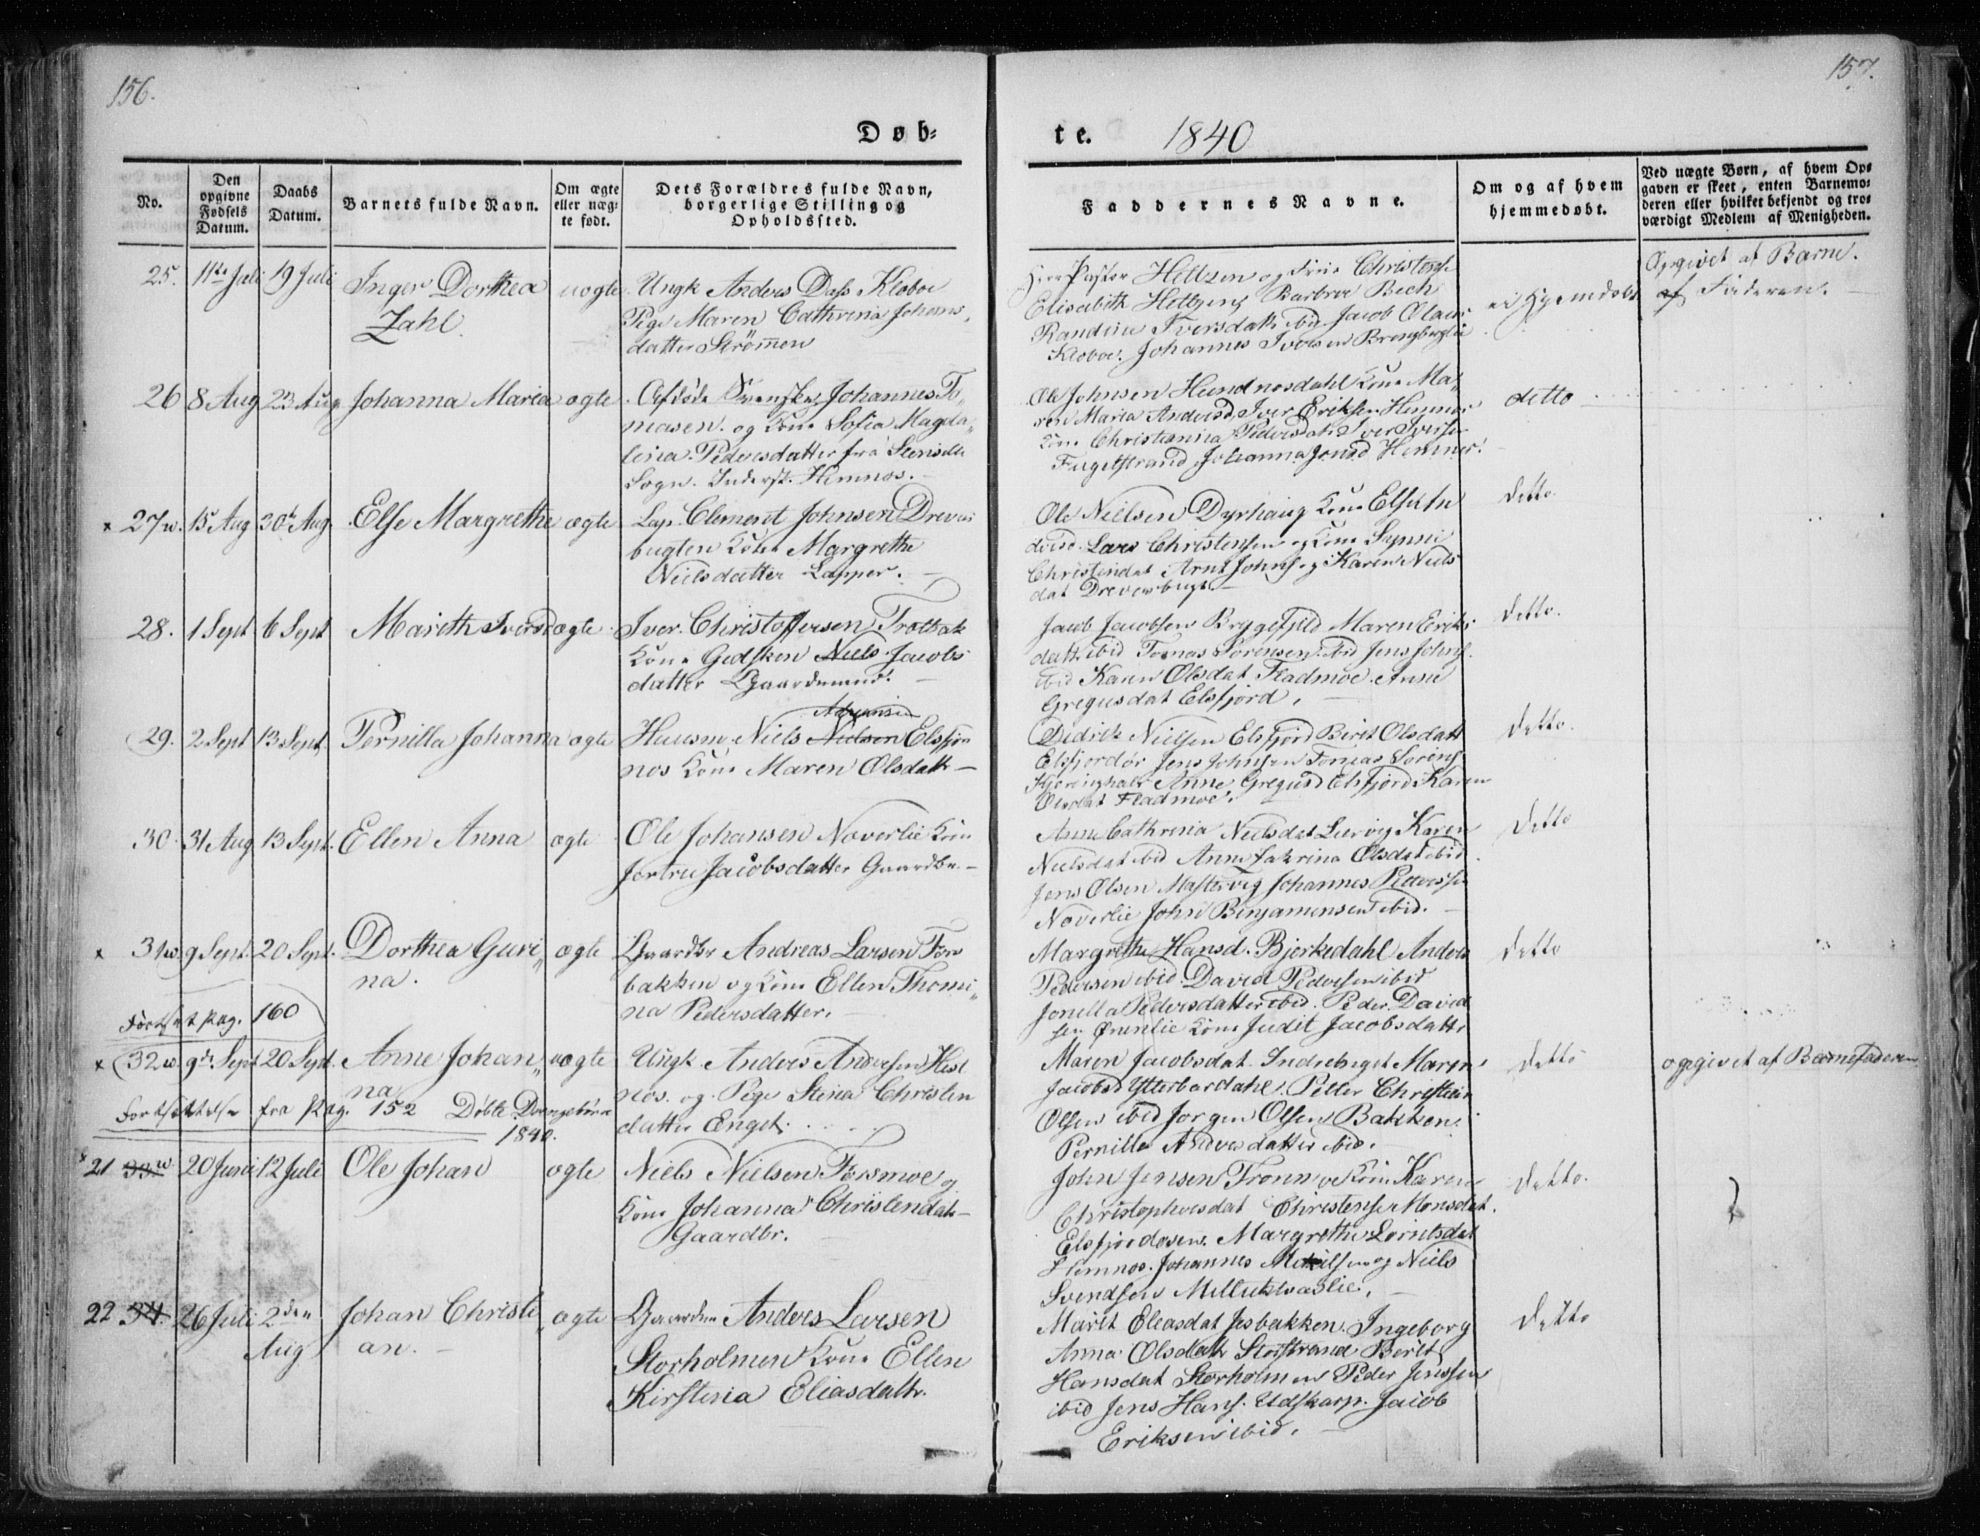 156.
157.
Døb-
te. 1840
No.
Den opgivne Fødsels Datum.
Daabs Datum.
Barnets fulde Navn.
Om ægte eller uægte født.
Dets Forældres fulde Navn, borgerlige Stilling og Opholdssted.
Faddernes Navne.
Om og af hvem hjemmedøbt.
Ved uægte Børn, af hvem Opgaven er skeet, enten Barnemoderen eller hvilket bekjendt og troværdigt Medlem af Menigheden.
25. 11te Juli 19 Juli Inger Dorthea uægte Ungk Anders Dass Kloboe
Zahl. Pige Maren Cathrina Johans
datter Strømen
Herr Pastor Heltzen og Frue Christense
Elisabeth Heltzens Barbroe Bech
Randine Iversdatr ibid Jacob Olaus
Kloboe. Johannes Iversen
ei Hjemdøbt
Opgivet af Barne.
af Faderen.
26 8 Aug 23 Aug Johanna Maria ægte Afdøde Svenske Johannes To-
masen. og Kone Sofia Magda-
lena Pedersdatter fra Stensele
Sogn. Inderst. Hemnæs.
Ole Johnsen Hundnæsdahl Kone Ma-
ren Maria Andersd. Iver Eriksen Hemnæs
Kone Christianna Pedersdatr Iver Iversen
Fugelstrand Johanna Jonsd Hemnæs.
detto
27 w. 15 Aug 30t Aug. Else Margrethe ægte Lap. Clement Johnsen Drevas
bugten Kone Margrethe
Nielsdatter Lapper.
Ole Nielsen Dyrhaug Kone Else An
dersd. Lars Christensen og Kone Synni
Christendat Arnt Johns. og Karen Niels
dat Drevesbugt.
detto.
28. 1 Sept 6 Sept Mareth Iversd ægte Iver Christoffersen Trolbak
Kone Gedsken Niels Jacobs
datter Gaardmand.
Jacob Jacobsen Bryggefjeld Maren Eriks
datt. ibid Tomas Sørensen ibid Jens Johns.
ibid Karen Olsdat Fladmoe Anne
Gregusdat Elsfjord.
detto.
29. 2 Sept 13 Sept. Pernilla Johanna ægte Huusm. Niels Nielsen Adriansen Elsfjor
næs Kone Maren Olsdatr
Didrik Nielsen Elsfjord Berit Olsdatt
Elsfjordør Jens Johnsen Tomas Sørens.
Kjeringhals Anne Gregusd Elsfjord Karen
Olsdat Fladmoe.
Detto.
30. 31 Aug 13 Sept. Ellen Anna ægte Ole Johansen Næverlie Kone
Jertru Jacobsdatter Gaardbr.
Anne Cathrina Nielsdat Leervig Karen
Nielsdat ibid Anne Catrina Olsdat ibid
Jens Olsen Mastervig Johannes Pedersen
Næverlie Johs Benjamensen ibid.
Detto
31 w 9 Sept. 20 Sept. Dorthea Guri ægte Gaardbr Andreas Larsen For
na. bakken og Kone Ellen Thomi
na Pedersdatter.
Margrethe Hansd. Bjerkedahl Anders
Pedersen ibid. David Pedersen ibid
Jonilla Pedersdatter ibid. Peder David
sen Ørenlie Kone Judit Jacobsdatter
detto
Fortsat Pag. 160
32 w 9de Sept 20 Sept. Anne Johan uægte Ungk Anders Andersen Hest
na næs. og Pige Stina Christen
datter Enget.
Maren Jacobsdat Indreenget Maren
Jacobsd Ytterbardahl. Peller Christian
Olsen ibid Jørgen Olsen Bakken.
Pernilla Andersdatter ibid.
detto
opgivet af Barnefaderen
Fortsættelse fra Pag. 152 Døbte Drengebørn
1840.
21 33 w 20 Junii 12 Juli Ole Johan ægte Niels Nielsen Forsmoe og
Kone Johanna Christendatr
Gaardbr.
John Jensen Fronmoe Kone Karen
Christophersdat Christense Monsdat.
Elsfjordosen Margrethe Lorntsdat
Hemnæs. Johannes Mikkelsen og Niels
Svendsen
Detto.
22 34. 26 Juli 2den Johan Christi ægte Gaardm Anders Larsen
Aug an. Storholmen Kone Ellen
Kirstina Eliasdatr.
Marit Eleasdat Jesbakken. Ingeborg
Anna Olsdatr Storstrand Berit
Hansdat Storholmen Peder Jenssen
ibid Jens Hans. Udskarp. Jacob
Eriksen ibid.
Detto